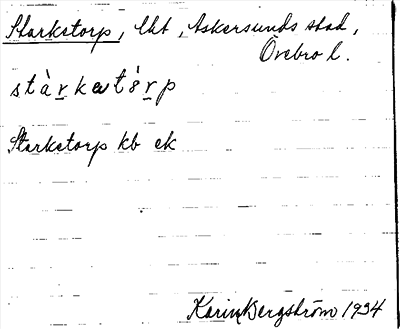 Starkstorp, lht, Askersunds stad,
Örebro l.
stàrkɷtórp
Starkatorp kb ek
Karin Bergström 1934